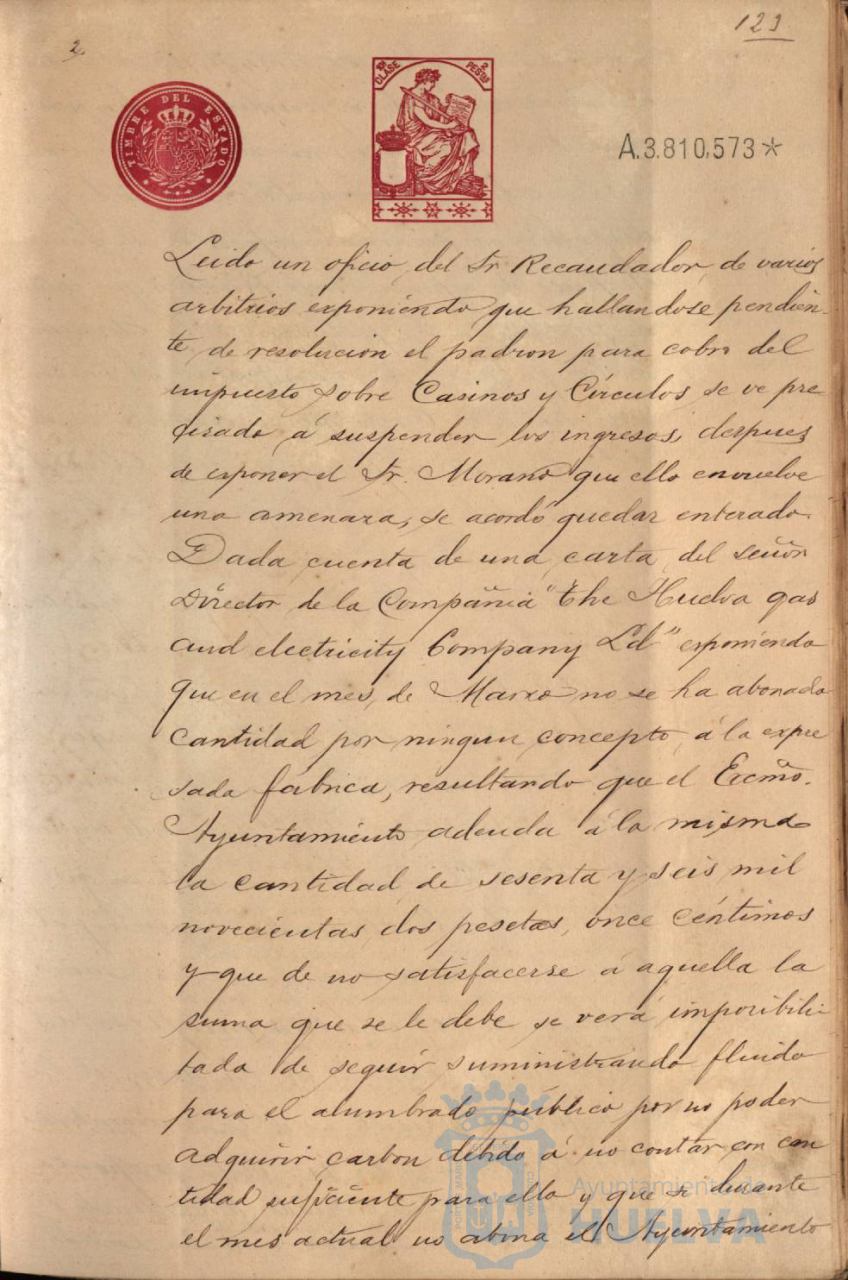 2
123
TIMBRE DEL ESTADO
CLASE
2 PESETAS
A.3.810,573*
Leido un oficio del Sr Recaudador de varios
arbitrios exponiendo que hallandose pendien-
te de resolución el padron para cobro del
impuesto sobre Casinos y Círculos, se ve pre
cisado á suspender los ingresos, despues
de exponer el Sr. Morano que ello envuelve
una amenaza, se acordó quedar enterado.
Dada cuenta de una carta del señor
Director de la Compañia "The Huelva gas
and electricity Company Ld" exponiendo
que en el mes de Marzo no se ha abonado
cantidad por ningun concepto á la expre
sada fábrica, resultando que el Excmo.
Ayuntamiento adeuda á la misma
la cantidad de sesenta y seis mil
novecientas dos pesetas, once céntimos
y que de no satisfacerse á aquella la
suma que se le debe se verá imposibili-
tada de seguir suministrando fluido
para el alumbrado público por no poder
adquirir carbon debido á no contar con can
tidad suficiente para ello y que si durante
el mes actual no abona el Ayuntamiento
Ayuntamiento de
HUELVA